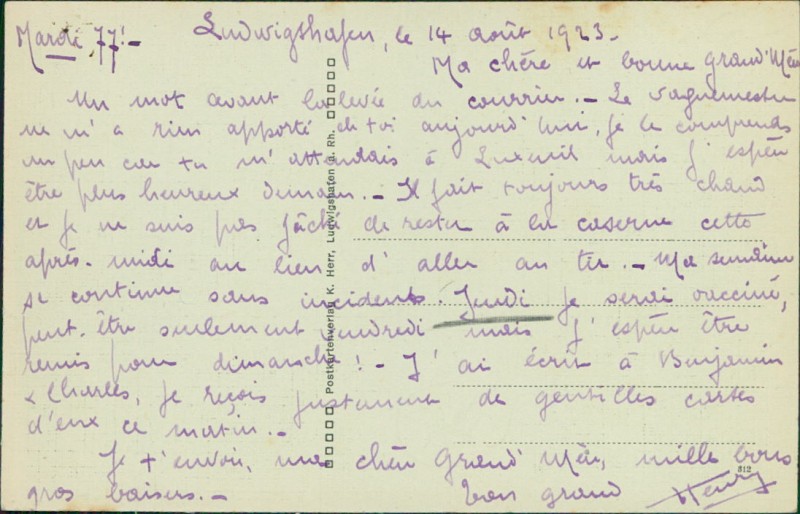 Mardi 77! -
Ludwigshafen, le 14 août 1923 -
Ma chère et bonne Grand'Mère
Un mot avant la levée du courrier. - Le vaguemestre
ne m'a rien apporté de toi aujourd'hui, je le comprends
un peu car tu m'attendais à Luxeuil mais j'espère
être plus heureux demain. - Il fait toujours très chaud
et je ne suis pas fâché de rester à la caserne cette
après-midi au lieu d'aller au tir. - Ma semaine
se continue sans incidents. Jeudi je serai vacciné,
peut-être seulement vendredi mais j'espère être
remis pour dimanche! - J'ai écrit à Benjamin
& Charles, je reçois justement de gentilles cartes
d'eux ce matin. -
Je t'envoie, ma chère Grand'Mère, mille bons
gros baisers. -
Ton grand Henry
Postkartenverlag K. Herr, Ludwigshafen a. Rh.
812